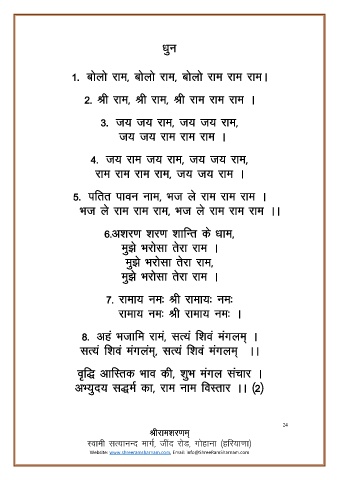 धुन
1. बोलो राम, बोलो राम, बोलो राम राम राम।
2. श्री राम, श्री राम, श्री राम राम राम ।
3. जय जय राम, जय जय राम,
जय जय राम राम राम ।
4. जय राम जय राम, जय जय राम,
राम राम राम राम, जय जय राम ।
5. पतित पावन नाम, भज ले राम राम राम ।
भज ले राम राम राम, भज ले राम राम राम ।।
6.अशरण शरण शान्ति के धाम,
मुझे भरोसा तेरा राम ।
मुझे भरोसा तेरा राम,
मुझे भरोसा तेरा राम ।
7. रामाय नमः श्री रामायः नमः
रामाय नमः श्री रामाय नमः ।
8. अहं भजामि रामं, सत्यं शिवं मंगलम् ।
सत्यं शिवं मंगलंम्, सत्यं शिवं मंगलम् ।।
वृद्धि आस्तिक भाव की, शुभ मंगल संचार ।
अभ्युदय सद्धर्म का, राम नाम विस्तार ।। (2)
24
श्रीरामशरणम्
स्वामी सत्यानन्द मार्ग, जींद रोड, गोहाना (हरियाणा)
Website: www.shreeramsharnam.com, Email: info@shreeramsharnam.com